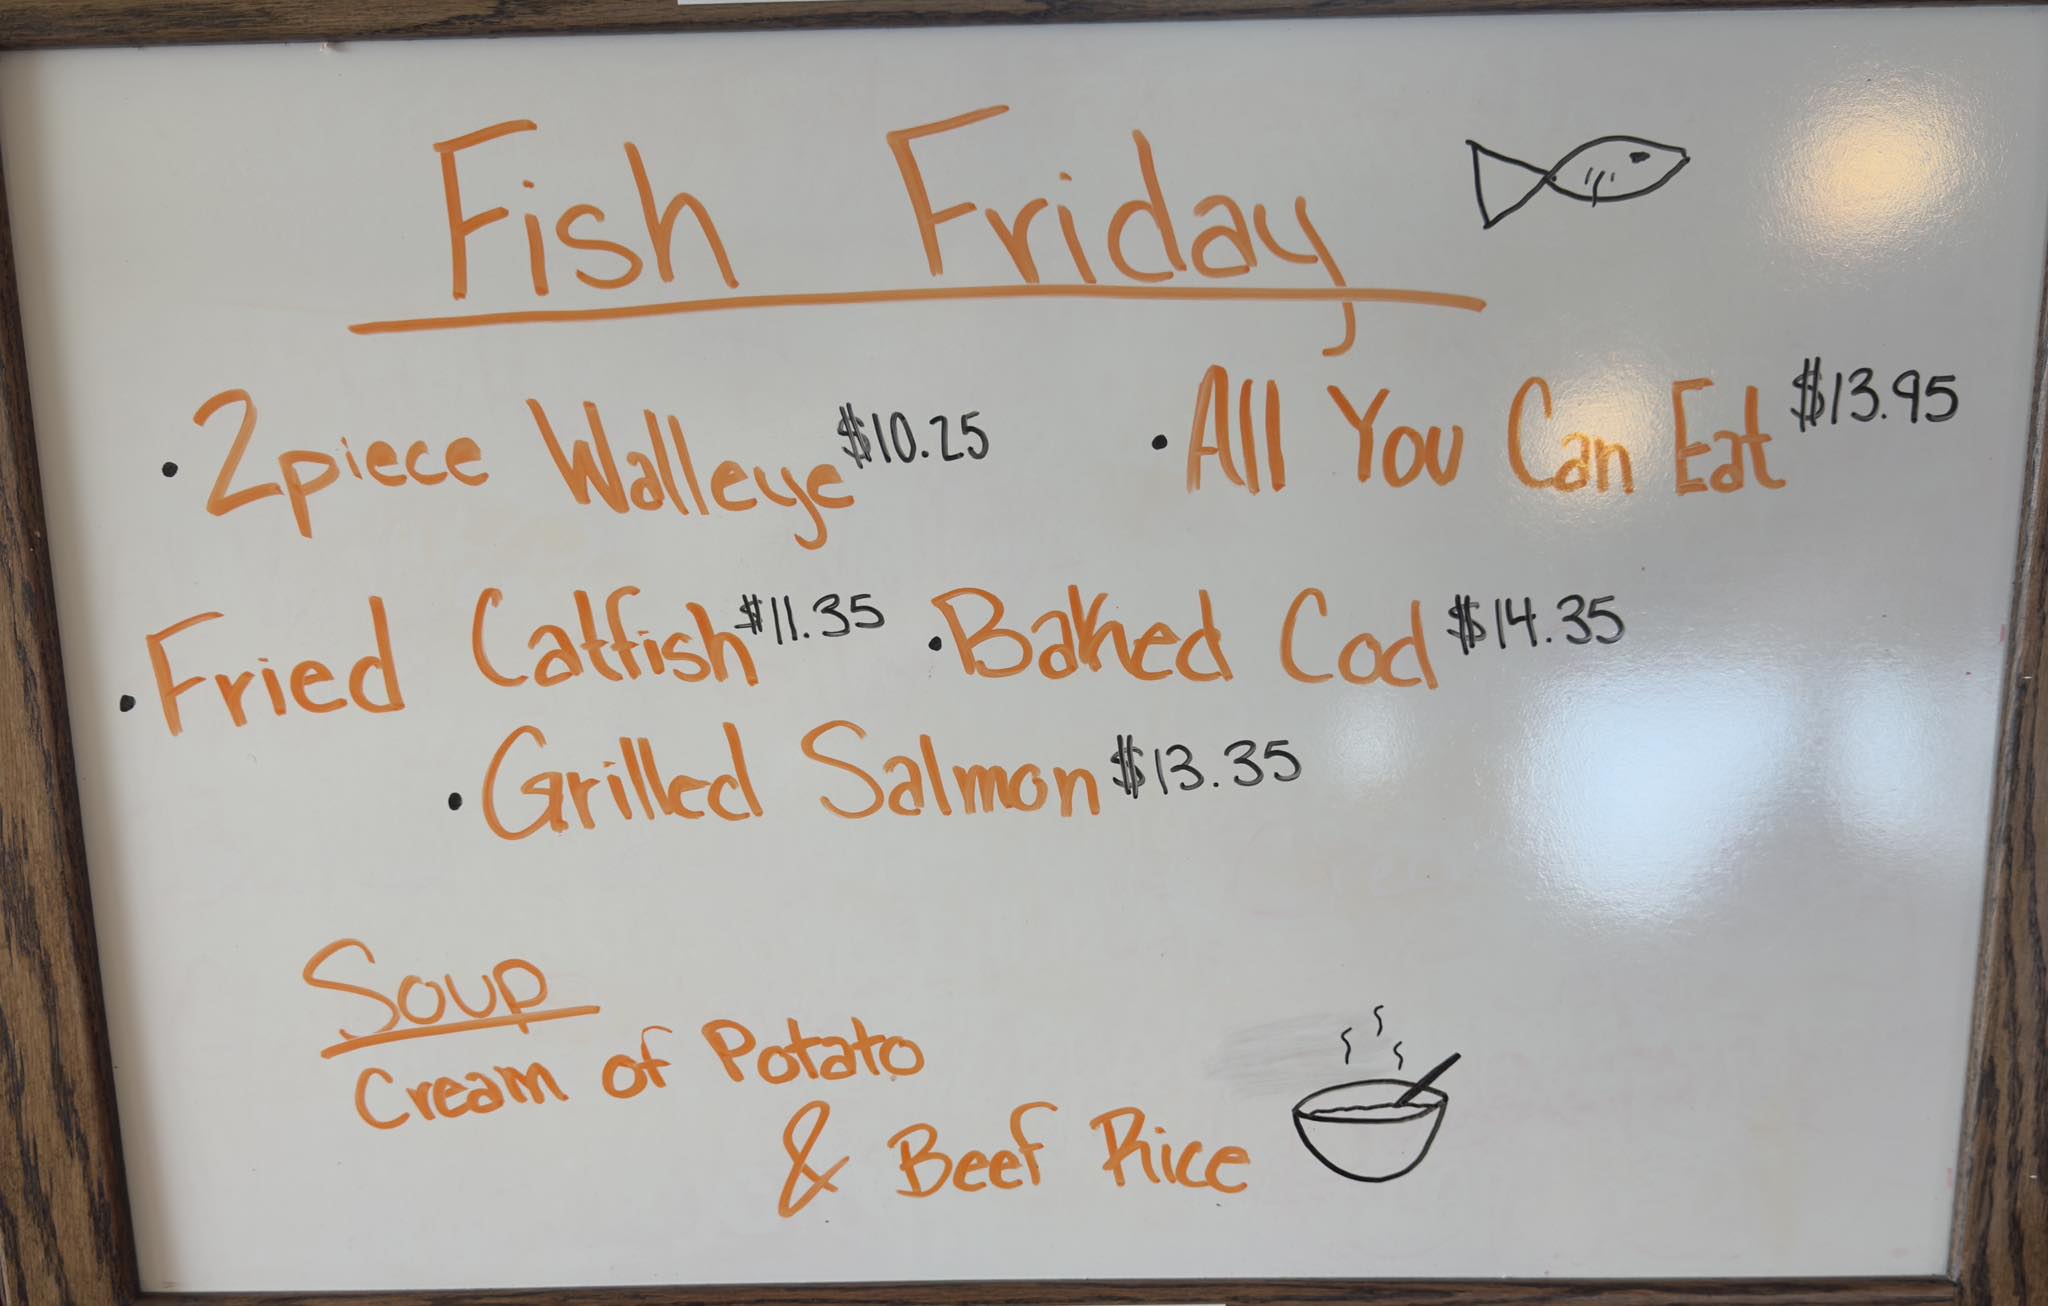 Fish Friday
• 2 piece Walleye $10.25
• All You Can Eat $13.95
• Fried Catfish $11.35
• Baked Cod $14.35
• Grilled Salmon $13.35
Soup
Cream of Potato
& Beef Rice